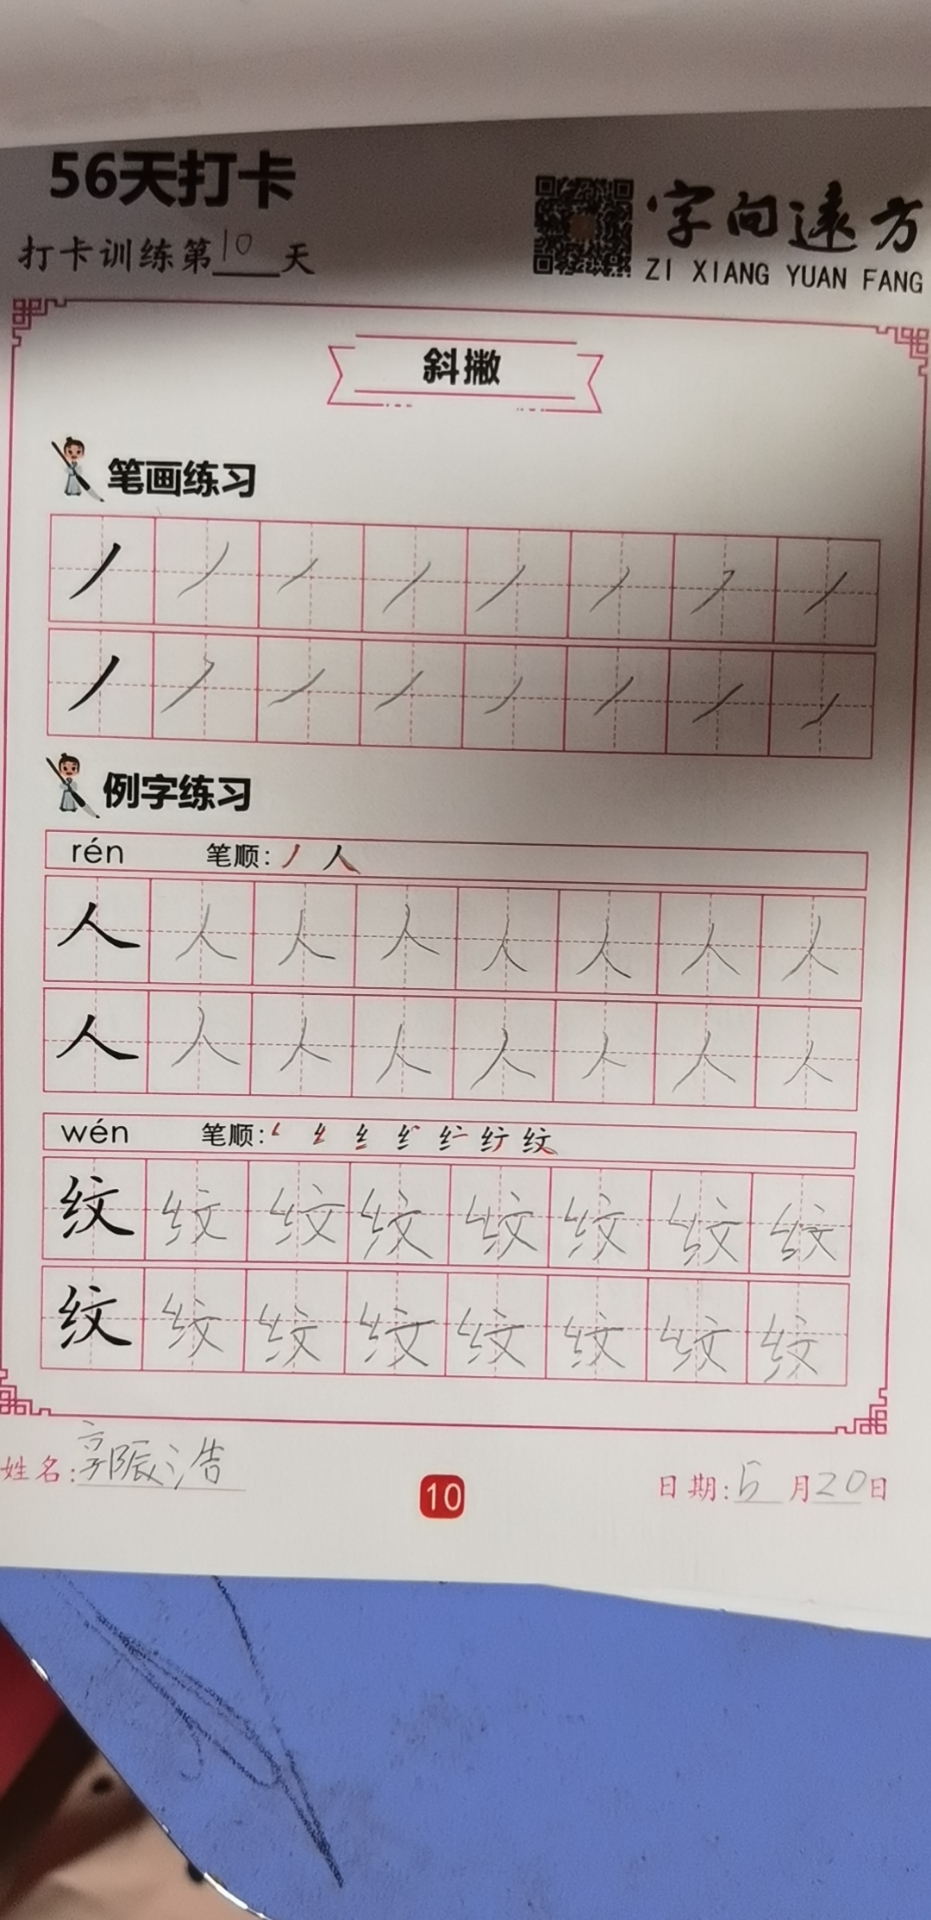 56天打卡
打卡训练第10天
字向远方
ZI XIANG YUAN FANG
斜撇
笔画练习
丿丿丿丿丿丿丿丿
丿丿丿丿丿丿丿丿
例字练习
rén 笔顺:丿 人
人人人人人人人人
人人人人人人人人
wén 笔顺:
纹纹纹纹纹纹纹纹
纹纹纹纹纹纹纹纹
姓名:郭辰浩
10
日期:5月20日